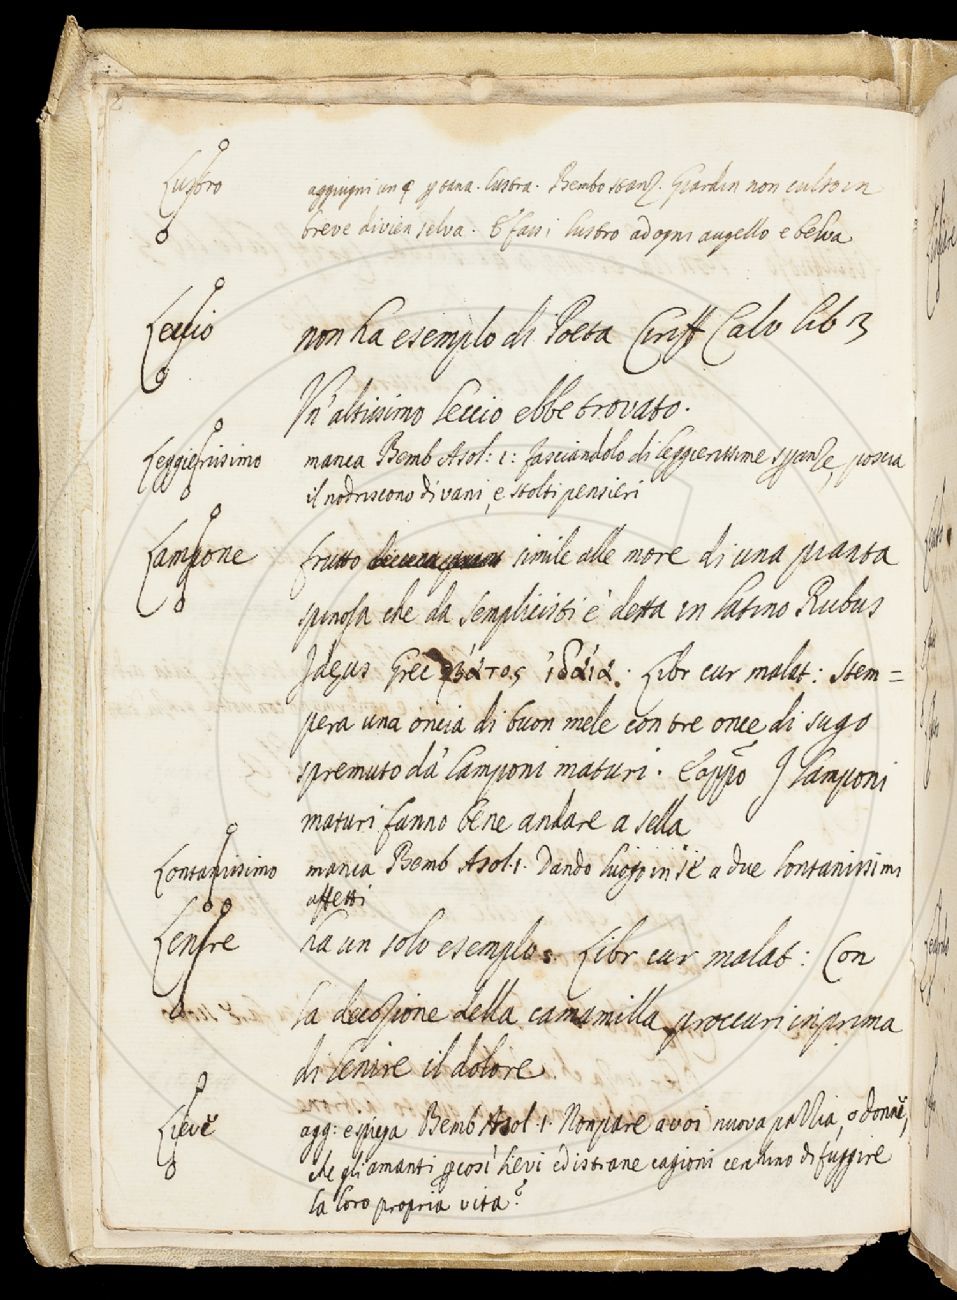 Lustro aggiugni un § tana. lustra. Bembo stanz. Giardin non culto in
breve divien selva. E fassi lustro ad ogni augello e belva
Leccio non ha esemplo di Poeta Ciriff Calv lib 3
Un' altissimo leccio ebbe trovato.
Leggierissimo manca Bemb Asol: 1: fasciandolo di leggierissime speranze, poscia
il nodriscono di vani, e stolti pensieri
Lampone frutto simile alle more di una pianta
spinosa che da semplicisti è detta in latino Rubus
Idaeus Grec βάτος ἰδαία. Libr cur malat: Stem=
pera una oncia di buon mele con tre once di sugo
spremuto da' lamponi maturi. E appō I lamponi
maturi fanno bene andare a sella
Lontanissimo manca Bemb Asol. 1. Dando luogo in sè a due lontanissimi
affetti
Lenire ha un solo esemplo. Libr cur malat: Con
la decozione della camamilla proccuri in prima
di lenire il dolore
Lieve agg: Bemb Asol. 1. Non pare a voi nuova pazzia, o donne,
che gli amanti p così lievi e distrane cagioni cerchino di fuggire
la loro propria vita?